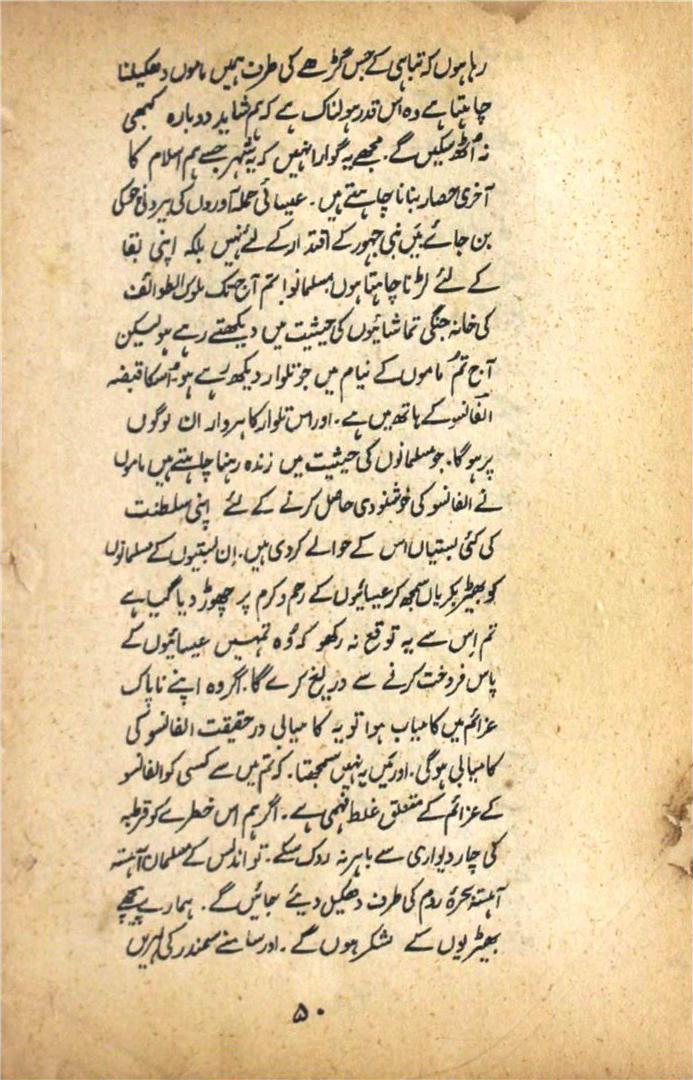 رہا ہوں کہ تباہی کے جس گڑھے کی طرف ہمیں ماموں دھکیلنا
چاہتا ہے وہ اس قدر ہولناک ہے کہ ہم شاید دوبارہ کبھی
نہ اُٹھ سکیں گے۔ مجھے یہ گوارا نہیں کہ یہ شہر جسے ہم اسلام کا
آخری حصار بنانا چاہتے ہیں۔ عیسائی حملہ آوروں کی بیرونی چوکی
بن جائے میں بنی جہور کے اقتدار کے لئے نہیں بلکہ اپنی بقا
کے لئے لڑنا چاہتا ہوں مسلمانو! تم آج تک ملوک الطوائف
کی خانہ جنگی تماشائیوں کی حیثیت میں دیکھتے رہے ہو لیکن
آج تم ماموں کے نیام میں جو تلوار دیکھ رہے ہو۔ اُس کا قبضہ
الفانسو کے ہاتھ میں ہے۔ اور اس تلوار کا ہر وار ان لوگوں
پر ہوگا۔ جو مسلمانوں کی حیثیت میں زندہ رہنا چاہتے ہیں ماموں
نے الفانسو کی خوشنودی حاصل کرنے کے لئے اپنی سلطنت
کی کئی بستیاں اس کے حوالے کر دی ہیں۔ اِن بستیوں کے مسلمانوں
کو بھیڑ بکریاں سمجھ کر عیسائیوں کے رحم و کرم پر چھوڑ دیا گیا ہے
تم اِس سے یہ توقع نہ رکھو کہ وُہ تمہیں عیسائیوں کے
پاس فروخت کرنے سے دریغ کرے گا۔ اگر وہ اپنے ناپاک
عزائم میں کامیاب ہوا تو یہ کامیابی درحقیقت الفانسو کی
کامیابی ہوگی۔ اور میں یہ نہیں سمجھتا۔ کہ تم میں سے کسی کو الفانسو
کے عزائم کے متعلق غلط فہمی ہے۔ اگر ہم اس خطرے کو قرطبہ
کی چار دیواری سے باہر نہ روک سکے۔ تو اندلس کے مسلمان آہستہ
آہستہ بحرۂ روم کی طرف دھکیل دیئے جائیں گے۔ ہمارے پیچھے
بھیڑیوں کے لشکر ہوں گے۔ اور سامنے سمندر کی لہریں
۵۰